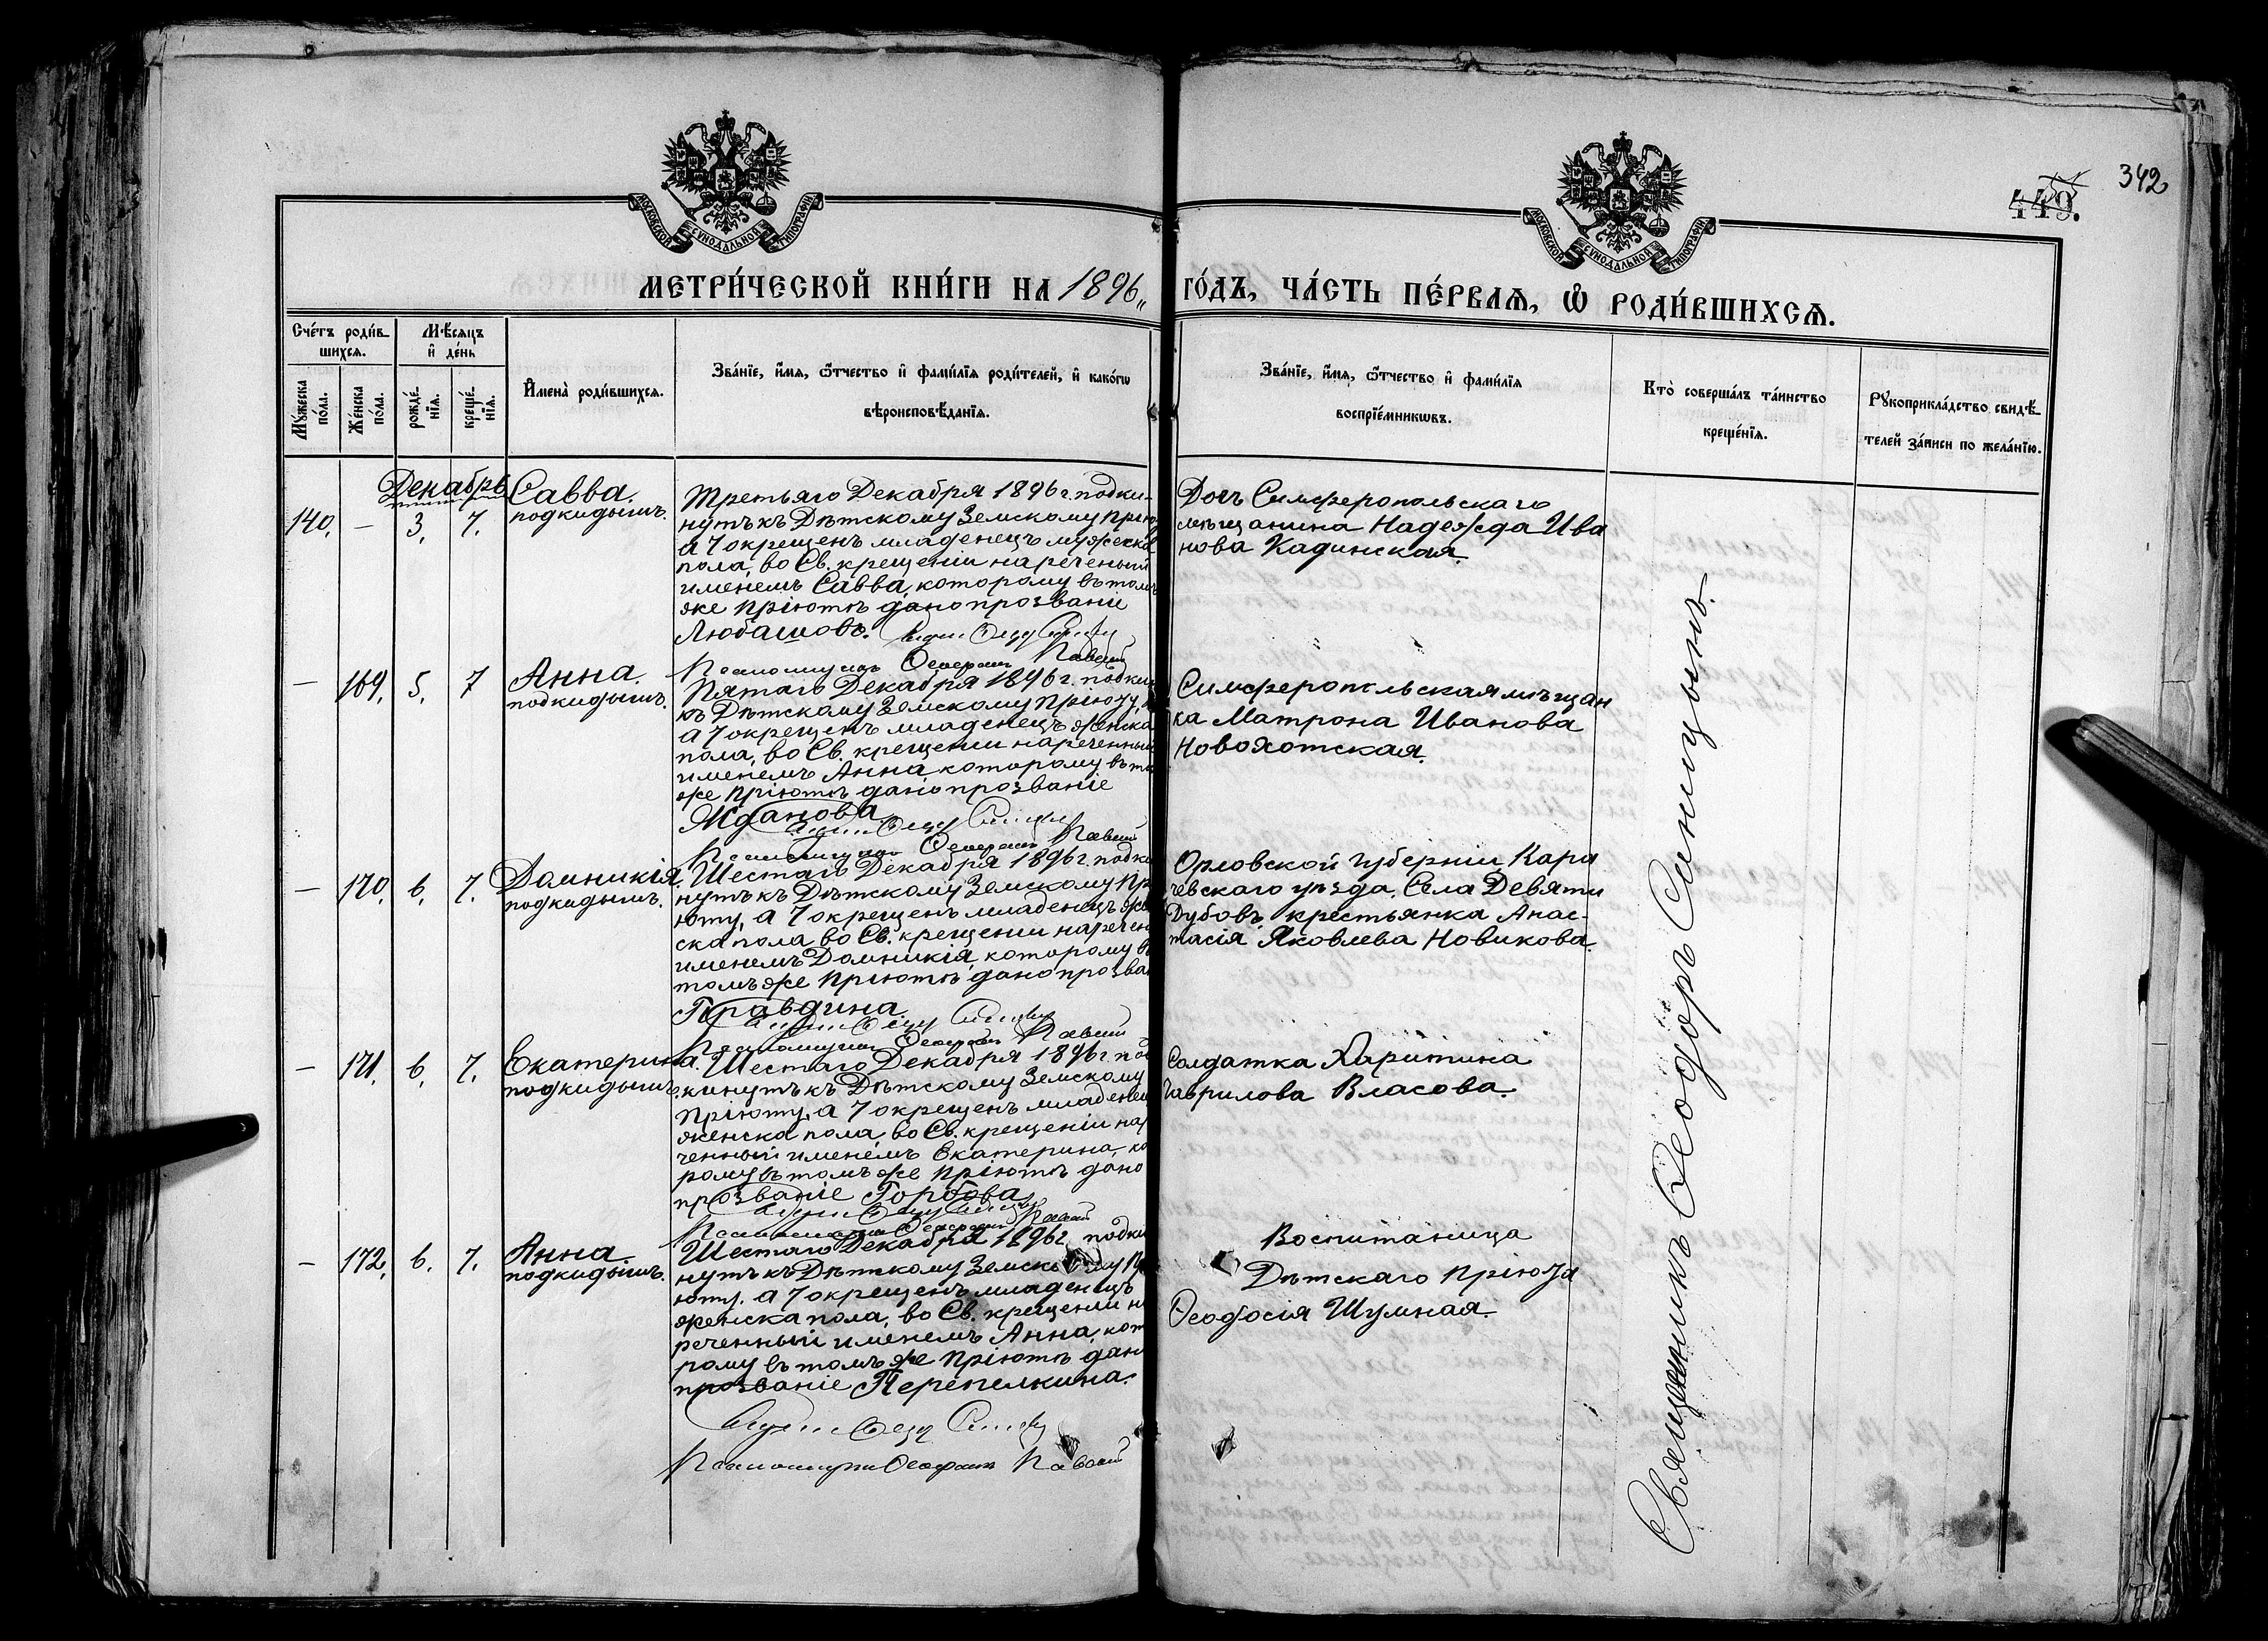 342
449.
МОСКОВСКОЙ СѴНОДАЛЬНОЙ ТИПОГРАФІИ
МОСКОВСКОЙ СѴНОДАЛЬНОЙ ТИПОГРАФІИ
МЕТРИ́ЧЕСКОЙ КНИ́ГИ НА 1896„ ГО́ДЪ, ЧА́СТЬ ПЕ́РВАѦ, Ѡ РОДИ́ВШИХСѦ.
Сче́тъ роди́в-
шихсѧ.
Мꙋ́жеска по́ла.
Же́нска по́ла.
Мѣ́сѧцъ
и҆ де́нь
рожде́нїѧ.
креще́нїѧ.
И҆мена̀ роди́вшихсѧ.
Зва́нїе, и҆́мѧ, ѻ҆́тчество и҆ фами́лїѧ роди́телей, и҆ како́гѡ
вѣроисповѣ́данїѧ.
Зва́нїе, и҆́мѧ, ѻ҆́тчество и҆ фами́лїѧ
воспрїе́мникѡвъ.
Кто̀ соверша́лъ та́инство
креще́нїѧ.
Рꙋкоприкла́дство свидѣ́-
телей за́писи по жела́нїю.
Декабрь
140. — 3. 7.
Савва.
подкидышъ.
Третьяго Декабря 1896 г. подки-
нутъ къ Дѣтскому Земскому Прію
а 7 окрещенъ младенецъ мужеска
пола, во Св. крещеніи нареченый
именемъ Савва, которому въ томъ
же Пріютѣ дано прозваніе
Любашовъ.
Дочь Симферопольскаго
мѣщанина Надежда Ива
нова Кадинская.
Псаломщикъ
— 169. 5. 7
Анна.
подкидышъ.
Пятаго Декабря 1896 г. подки
къ Дѣтскому Земскому Пріюту,
а 7 окрещенъ младенецъ женска
пола, во Св. крещении нареченный
именемъ Анна, которому въ то
же Пріютѣ дано прозваніе
Жданова
Симферопольская мѣщан
ка Матрона Иванова
Новохотская.
Псаломщикъ
— 170. 6. 7.
Домникія.
подкидышъ.
Шестаго Декабря 1896 г. подки
нутъ къ Дѣтскому Земскому Пр
юту, а 7 окрещенъ младенецъ жен
ска пола, во Св. крещении наречен
именемъ Домникія, которому въ
томъ же Пріютѣ дано прозва
Правдина
Орловской губерніи Кара
чевскаго уѣзда, Села Девяти
Дубовъ крестьянка Анас-
тасія Яковлева Новикова.
Псаломщикъ
— 171. 6. 7.
Екатерина.
подкидышъ.
Шестаго Декабря 1896 г. под
кинутъ къ Дѣтскому Земскому
Пріюту, а 7 окрещенъ младенец
женска пола, во Св. крещеніи нар
ченный именемъ Екатерина, ко
рому въ томъ же Пріютѣ дано
прозваніе Горбова
Солдатка Харитина
Гаврилова Власова.
Псаломщикъ
— 172. 6. 7.
Анна
подкидышъ.
Шестаго Декабря 1896 г. подки
нутъ къ Дѣтскому Земскому Пр
юту, а 7 окрещенъ младенецъ
женска пола, во Св. крещении на
реченный именемъ Анна, кот
рому въ томъ же Пріютѣ дан
прозваніе Перепелкина.
Воспитаница
Дѣтскаго Пріюта
Ѳеодосія Шумная.
Псаломщикъ
Священникъ Ѳеодоръ Синицынъ.